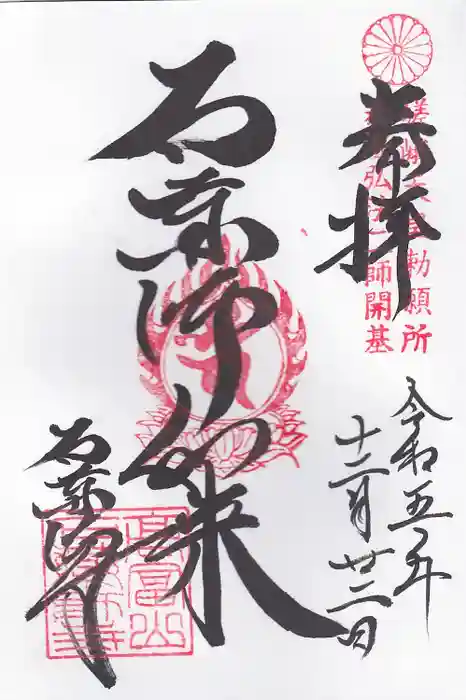 奉拝
嵯峨天皇勅願所
弘法大師開基
石薬師如来
令和五年
十二月廿二日
石薬師寺
高富山
石薬師寺